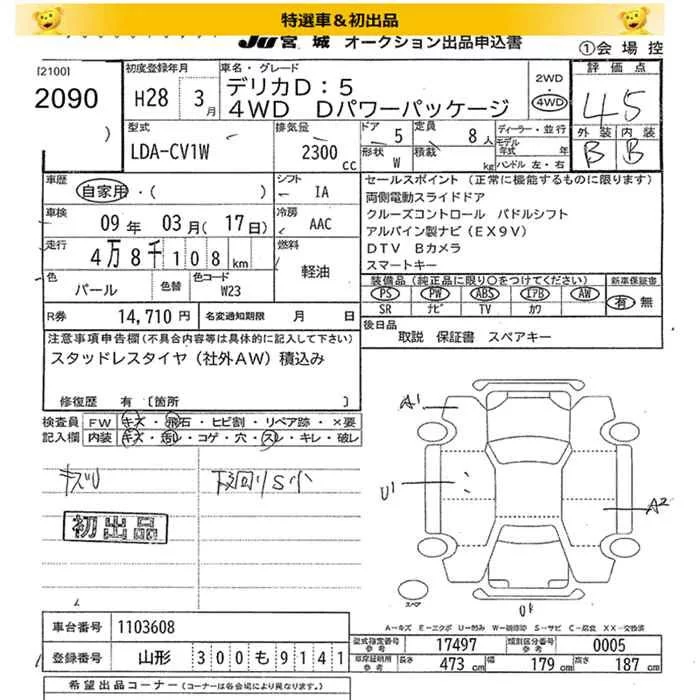 特選車&初出品
JU宮城 オークション出品申込書
①会場控
[2100]
2090
)
初度登録年月
H28 3月
車名・グレード
デリカD:5
4WD Dパワーパッケージ
2WD
・
4WD
評価点
4.5
外装 内装
B B
型式
LDA-CV1W
排気量
2300 cc
ドア 5
形状 W
定員 8人
積載 kg
ディーラー・並行
モデル年式 年
ハンドル 左・右
車歴
自家用・( )
シフト
IA
車検
09年 03月(17日)
冷房
AAC
走行
4万8千108km
燃料
軽油
色
パール
色替
色コード
W23
R券 14,710円
名変通知期限 月 日
セールスポイント(正常に機能するものに限ります)
両側電動スライドドア
クルーズコントロール パドルシフト
アルパイン製ナビ(EX9V)
DTV Bカメラ
スマートキー
装備品(純正品に限り○をつけてください)
PS PW ABS エアB AW
SR ナビ TV カワ
新車保証書
有 無
後日品
取説 保証書 スペアキー
注意事項申告欄(不具合内容等は具体的に記入して下さい)
スタッドレスタイヤ(社外AW)積込み
修復歴 有 〔箇所 〕
検査員 FW キズ・飛石・ヒビ割・リペア跡・×要
記入欄 内装 キズ・汚レ・コゲ・穴・スレ・キレ・破レ
キズU
下回りS小
初出品
A1
U1
A2
スペア
U1
A-キズ E-エクボ U-凹ミ W-補修跡 S-サビ C-腐食 XX-交換済
車台番号 1103608
登録番号 山形 300も9141
型式指定番号 参考 17497
類別区分番号 参考 0005
車庫証明用 参考 長さ 473cm 幅 179cm 高さ 187cm
希望出品コーナー(コーナーは各会場により異なります。)